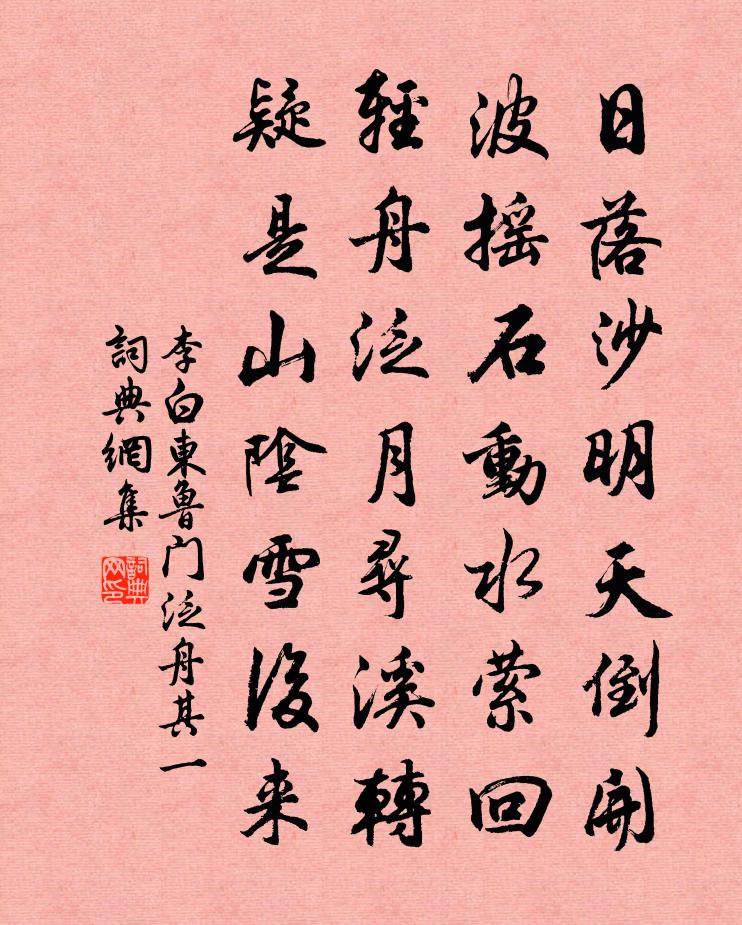 日落沙明天倒開
波摇石動水縈回
輕舟泛月尋溪轉
疑是山陰雪後来
李白東魯门泛舟其一
詞典網集
詞典网印